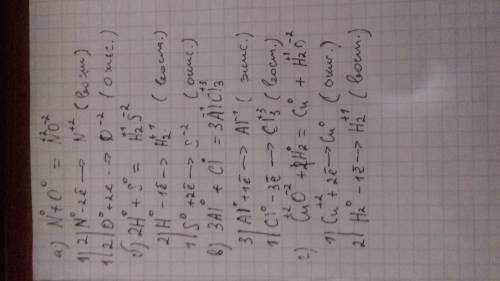 а) N⁰ + O⁰ = N⁺²O⁻²
1|2| N⁰ - 2ē → N⁺² (вост.)
1|2| O⁰ + 2e → O⁻² (окис.)
б) 2H⁰ + S⁰ = H₂⁺¹S⁻²
2| H⁰ - 1ē → H₂⁺¹ (вост.)
1| S⁰ + 2ē → S⁻² (окис.)
в) 3Al⁰ + Cl⁰ = 3Al⁻¹Cl₃⁺³
3| Al⁰ + 1ē → Al⁻¹ (окис.)
1| Cl⁰ - 3ē → Cl₃⁺³ (вост.)
г) Cu⁺²O⁻² + H₂⁰ = Cu⁰ + H₂⁺¹O⁻²
1| Cu⁺² + 2ē → Cu⁰ (окис.)
2| H₂⁰ - 1ē → H₂⁺¹ (вост.)